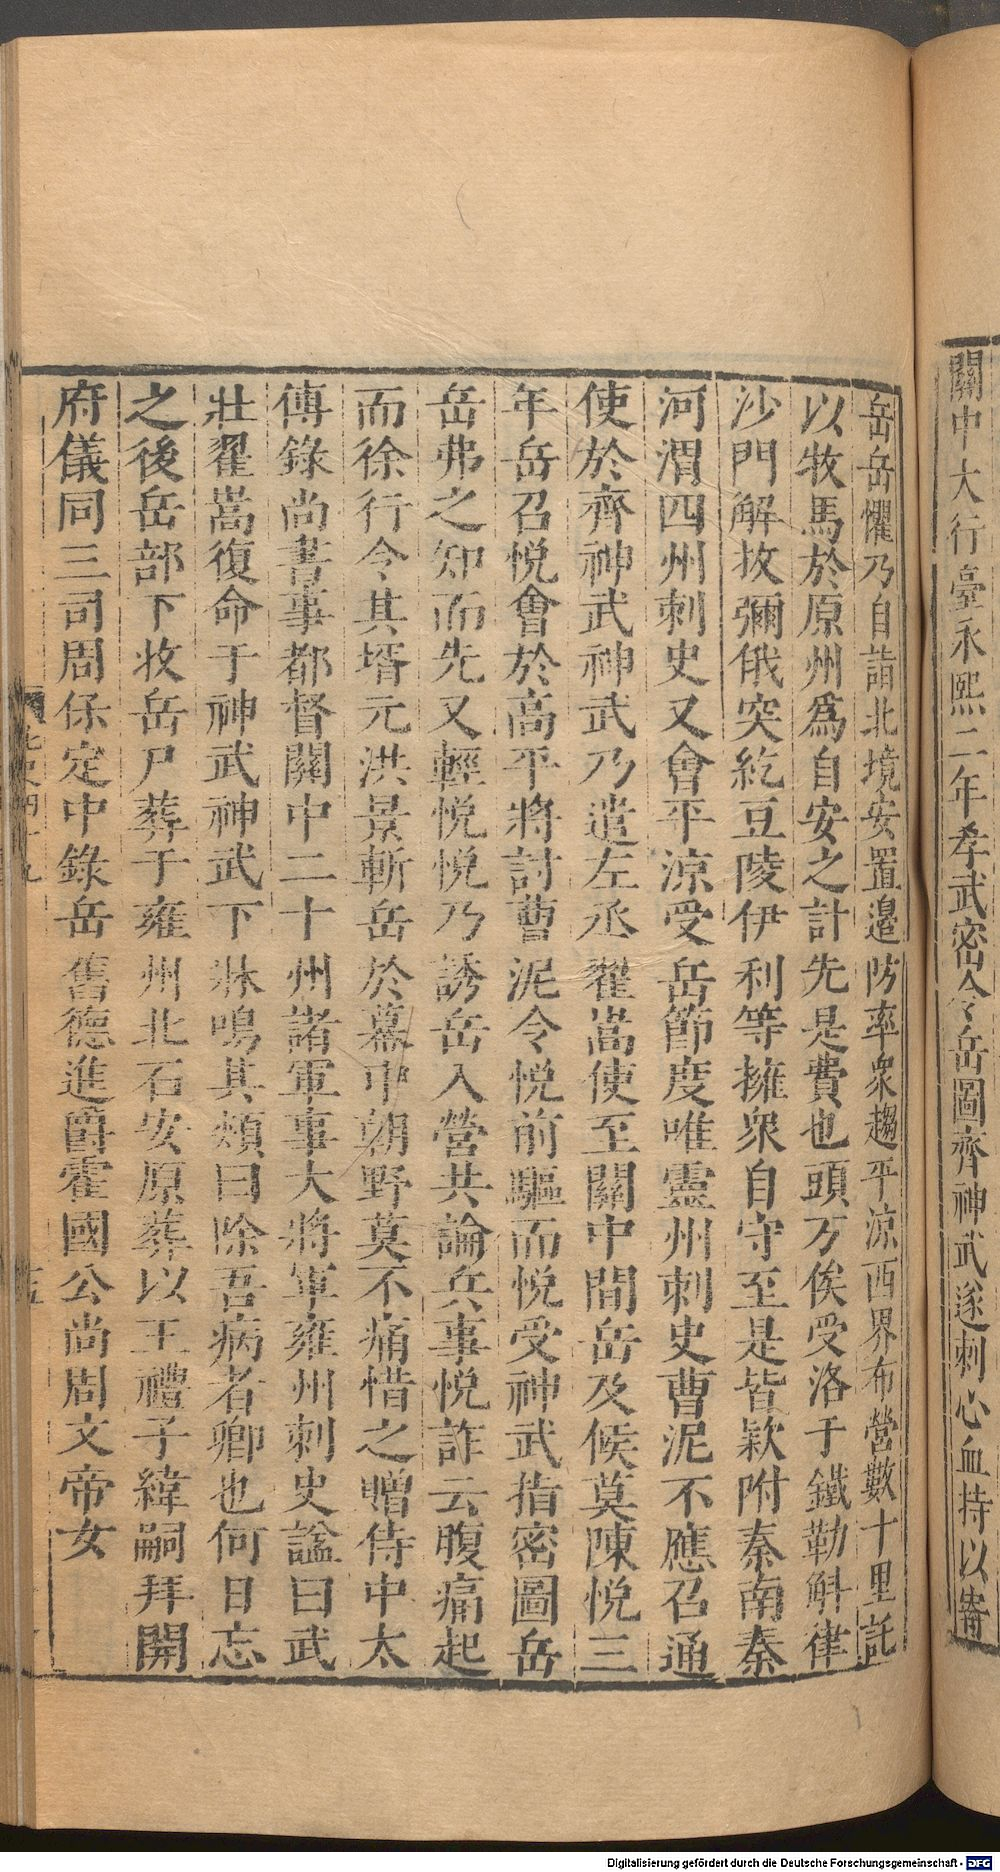 關中大行臺永熙二年孝武密令岳圖齊神武遂刺心血持以寄
岳岳懼乃自詣北境安置邊防率衆趨平涼西界布營數十里託
以牧馬於原州爲自安之計先是費也頭万俟受洛于鐵勒斛律
沙門解拔彌俄突紇豆陵伊利等擁衆自守至是皆款附秦南秦
河渭四州刺史又會平涼受岳節度唯靈州刺史曹泥不應召通
使於齊神武神武乃遣左丞翟嵩使至關中間岳及侯莫陳悦三
年岳召悦會於高平將討曹泥令悦前驅而悦受神武指密圖岳
岳弗之知而先又輕悦悦乃誘岳入營共論兵事悦詐云腹痛起
而徐行令其壻元洪景斬岳於幕中朝野莫不痛惜之贈侍中太
傅錄尚書事都督關中二十州諸軍事大將軍雍州刺史諡曰武
壯翟嵩復命于神武神武下牀鳴其頰曰除吾病者卿也何日忘
之後岳部下收岳尸葬于雍州北石安原葬以王禮子緯嗣拜開
府儀同三司周保定中錄岳舊德進爵霍國公尚周文帝女
Digitalisierung gefördert durch die Deutsche Forschungsgemeinschaft - DFG